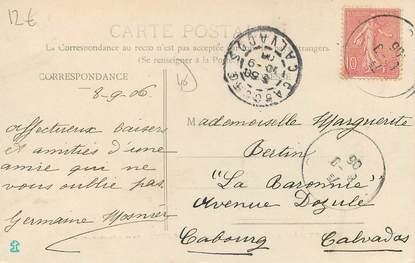 12€
CARTE POSTALE
La Correspondance au recto n'est pas acceptée étrangers.
(Se renseigner à la Poste)
CORRESPONDANCE
8-9-06
10
affectueux baisers
et amitiés d'une
amie qui ne
vous oublie pas.
Germaine
Mademoiselle Marguerite
Bertin
"La Baronnie"
Avenue Dozulé
Cabourg Calvados
CABOURG
CALVADOS
10